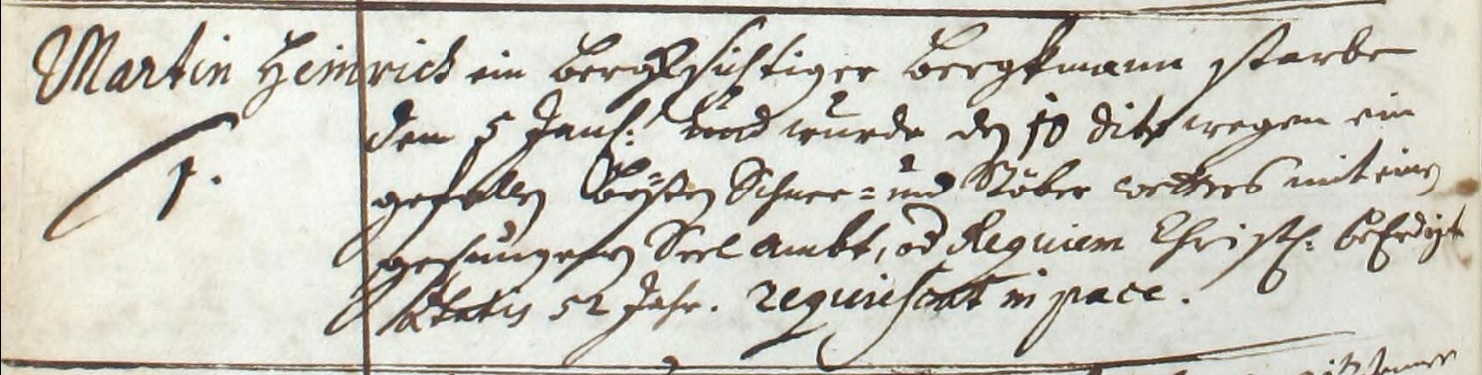 Martin Heinrich ein bergksichtiger Bergkmann starbe
den 5 Janʃ: und wurde den 10 dito wegen ein
1.
gefallen bößen Schnee= und Stöber wetters mit einen
gesungenen Seel Ambt, od Requiem Christl: beerdigt
Ætatis 52 Jahr. requiescat in pace.